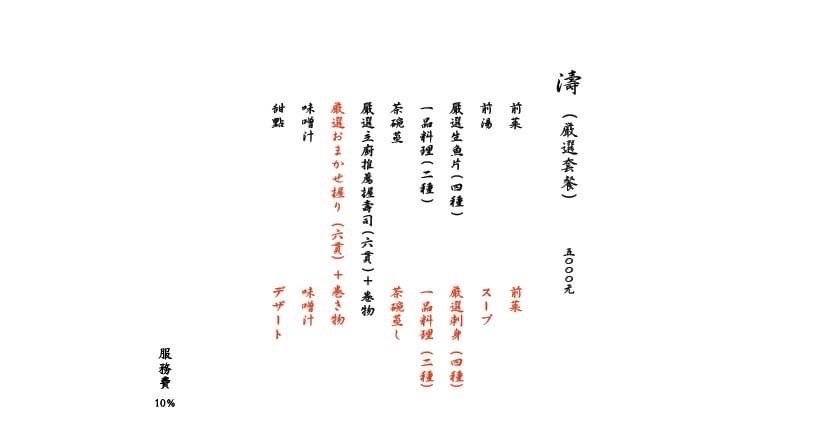 濤 (嚴選套餐) 五〇〇〇元
前菜 前菜
前湯 スープ
嚴選生魚片(四種) 厳選刺身 (四種)
一品料理(二種) 一品料理 (二種)
茶碗蒸 茶碗蒸し
嚴選主廚推薦握壽司(六貫)+卷物
厳選おまかせ握り (六貫) + 巻き物
味噌汁 味噌汁
甜點 デザート
服務費
10%